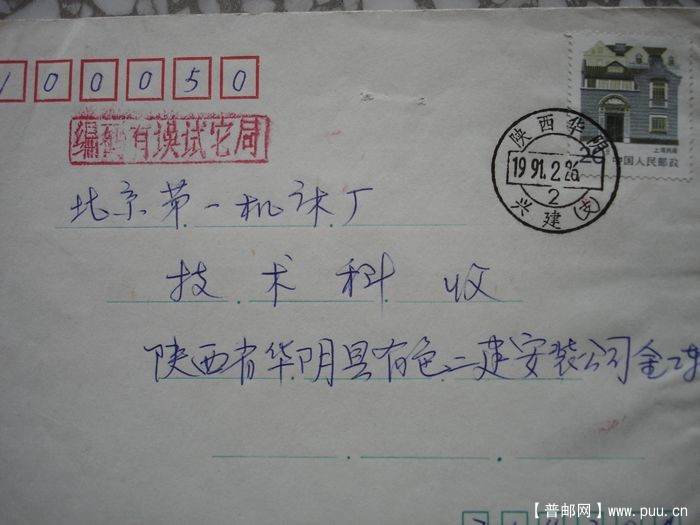 100050
编码有误试它局
上海民居
20 中国人民邮政
陕西华阴
1991.2.26
2
兴建(支)
北京第一机床厂
技术科 收
陕西省华阴县有色二建安装公司金
【普邮网】www.puu.cn